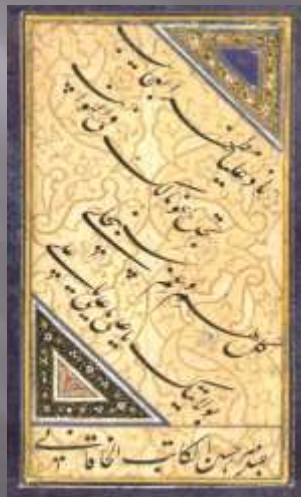 ناد علیا مظهر العجایب
تجده عونا لک فی النوایب
کل هم و غم سینجلی
بولایتک یا علی یا علی یا علی
میر حسین الکاتب الخاقانی